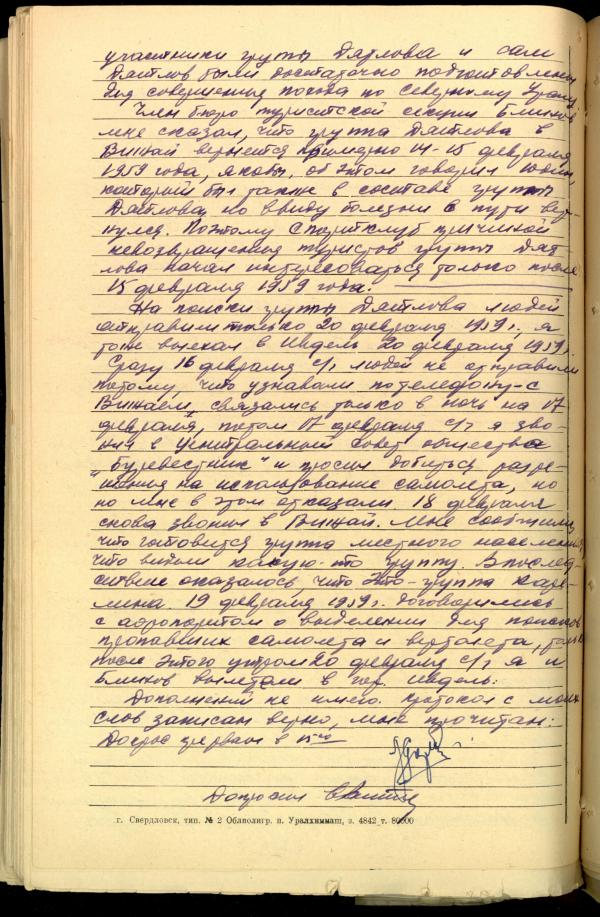 участники группы Дятлова и сам
Дятлов были достаточно подготовлены
для совершения похода по северному Уралу.
Член бюро туристской секции Блинов
мне сказал, что группа Дятлова в
Вижай вернется примерно 14-15 февраля
1959 года, якобы, об этом говорил Юдин,
который был также в составе группы
Дятлова, но ввиду болезни с пути вер-
нулся. Поэтому спортклуб причиной
невозвращения туристов группы Дят-
лова начал интересоваться только после
15 февраля 1959 года.
На поиски группы Дятлова людей
отправили только 20 февраля 1959 г. я
тоже выехал в Ивдель 20 февраля 1959 г.
Сразу 16 февраля с/г людей не отправили
потому, что узнавали по телефону - с
Вижаем связались только в ночь на 17
февраля, потом 17 февраля с/г я зво-
нил в Центральный совет общества
"Буревестник" и просил добиться разре-
шения на использование самолета, но
но мне в этом отказали. 18 февраля
снова звонил в Вижай. Мне сообщили,
что готовится группа местного населения,
что видели какую-то группу. Впослед-
ствие оказалось, что это - группа Каре-
лина. 19 февраля 1959 г. договорились
с аэропортом о выделении для поисков
пропавших самолета и вертолета, только
после этого утром 20 февраля с/г я и
Блинов вылетели в гор. Ивдель.
Дополнений не имею. Протокол с моих
слов записан верно, мне прочитан:
Допрос прерван в
Допросил
г. Свердловск, тип. № 2 Облполигр. п. Уралхиммаш, з. 4842 т. 80000